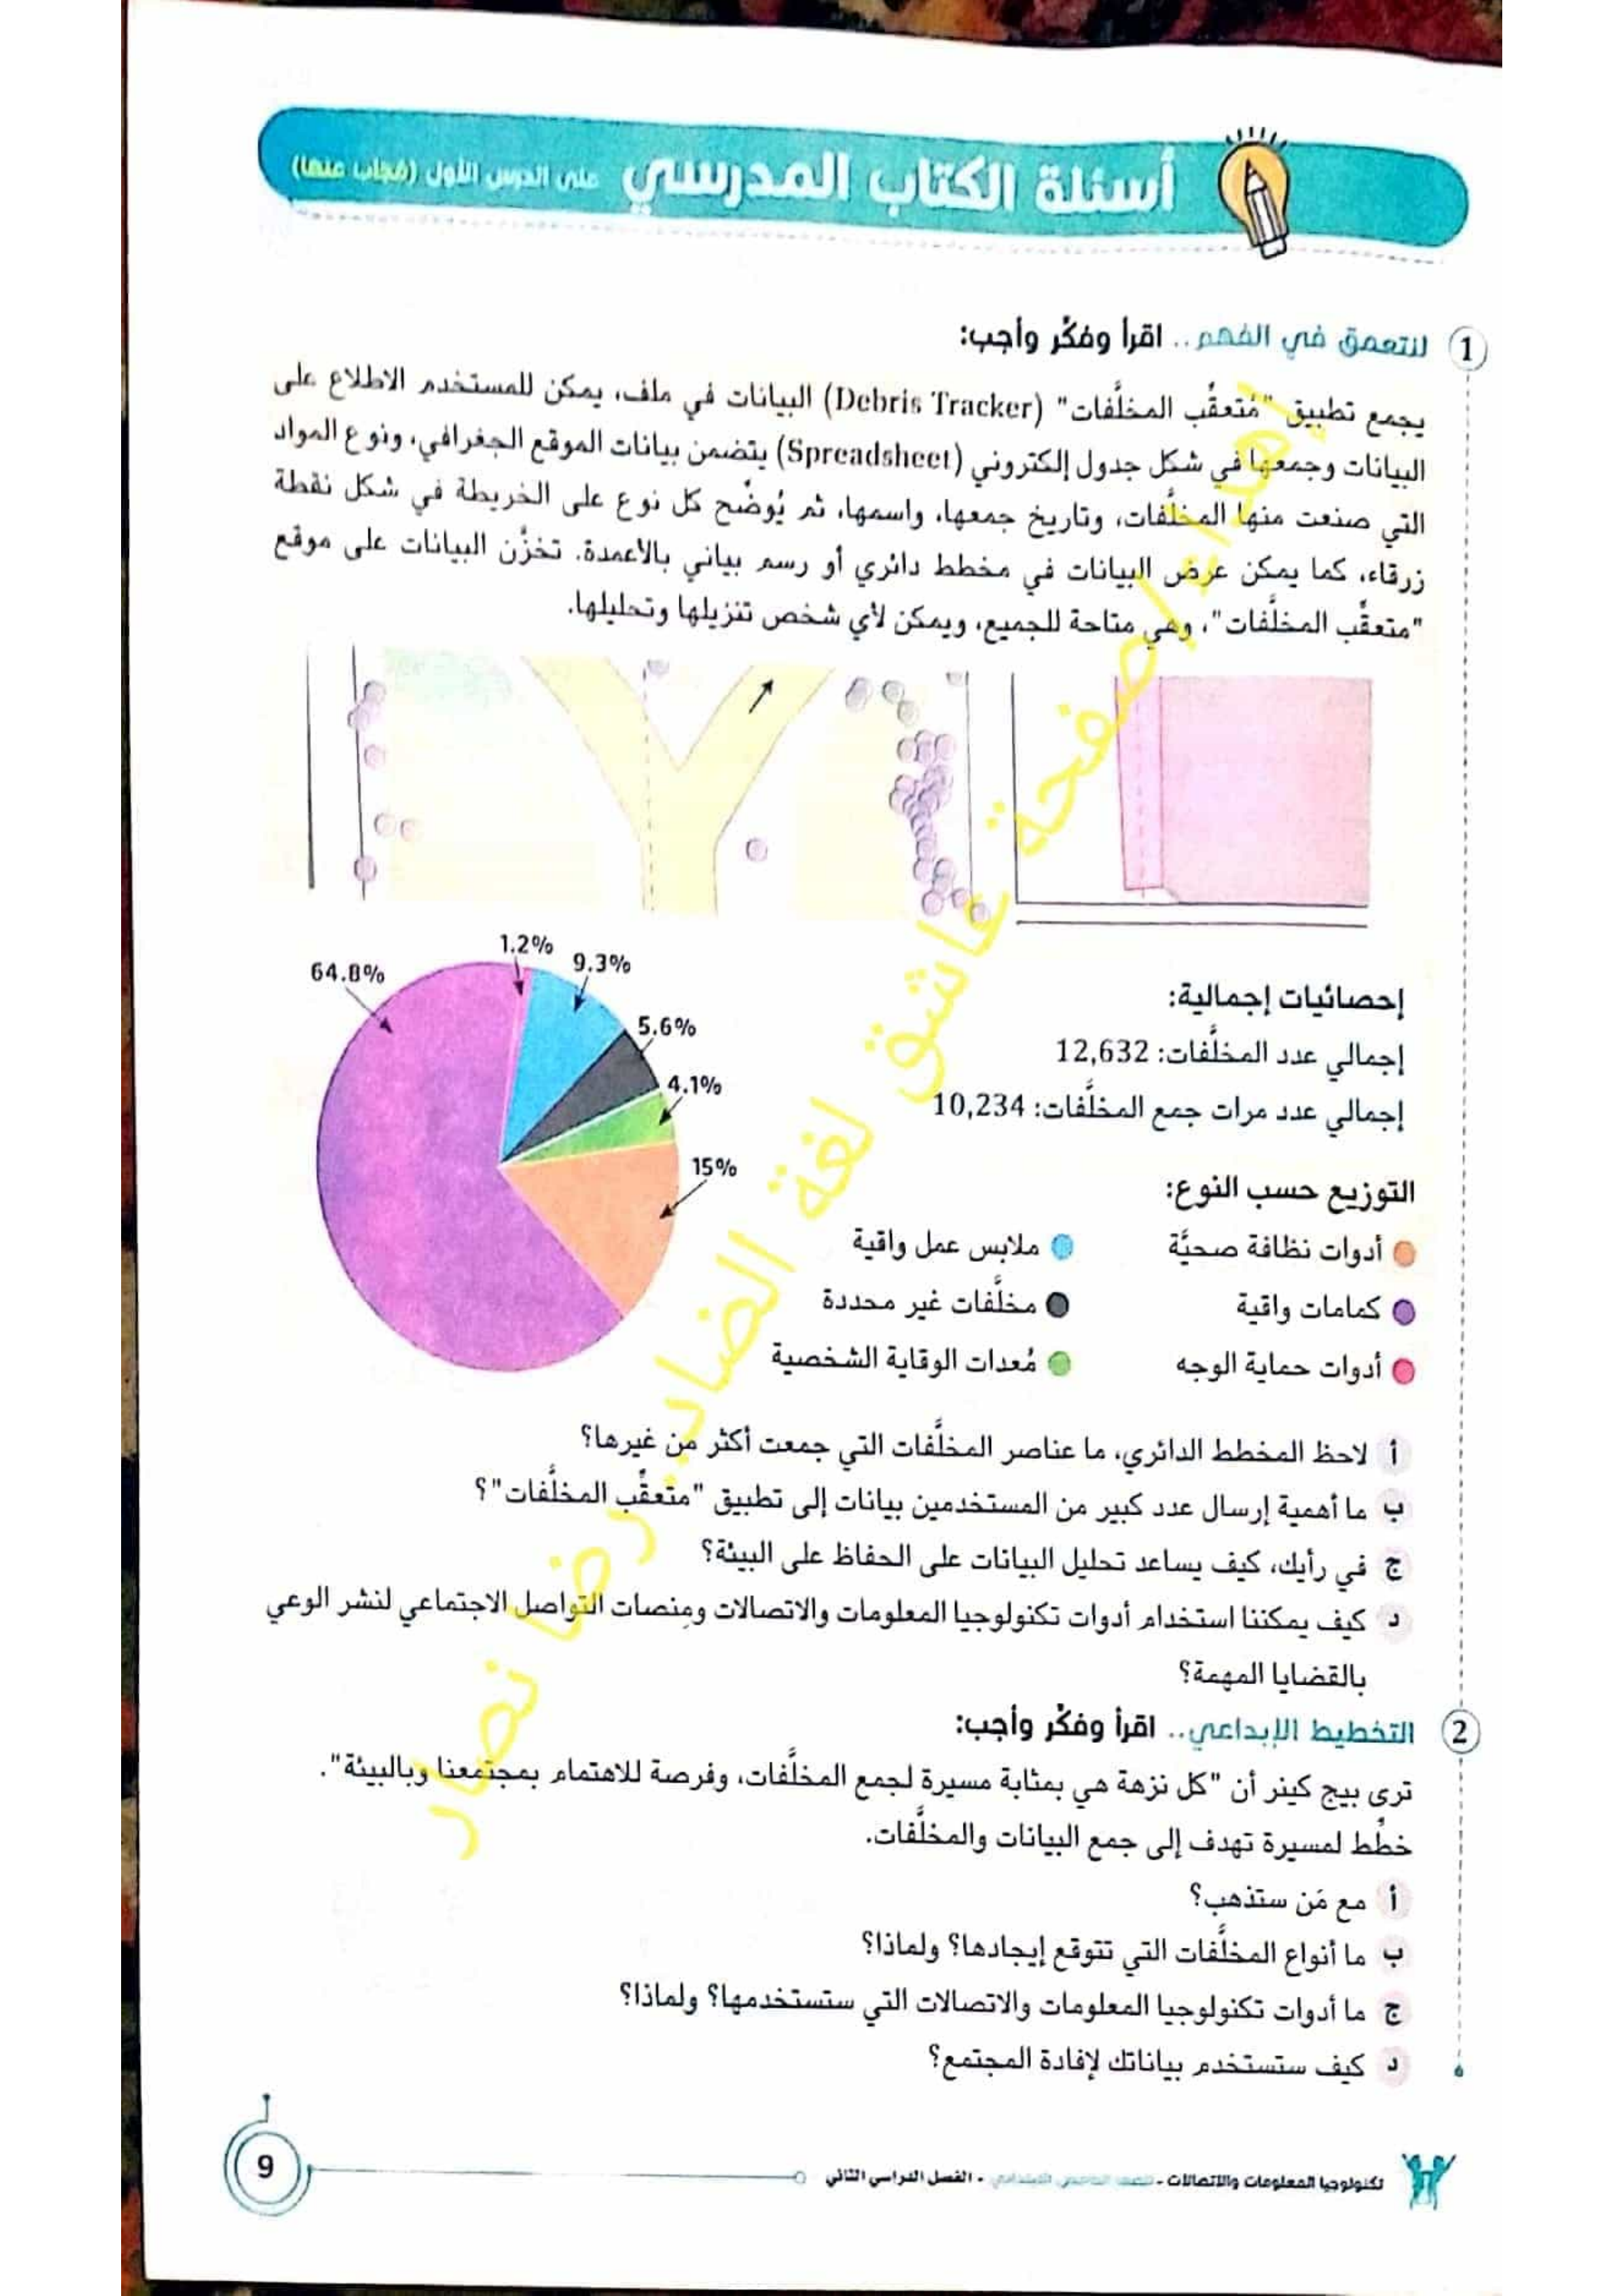 أسئلة الكتاب المدرسي على الدرس الأول (مُجاب عنها)
1 لنتعمق في الفهم.. اقرأ وفكِّر وأجب:
يجمع تطبيق "مُتعقِّب المخلَّفات" (Debris Tracker) البيانات في ملف، يمكن للمستخدم الاطلاع على
البيانات وجمعها في شكل جدول إلكتروني (Spreadsheet) يتضمن بيانات الموقع الجغرافي، ونوع المواد
التي صنعت منها المخلَّفات، وتاريخ جمعها، واسمها، ثم يُوضَّح كل نوع على الخريطة في شكل نقطة
زرقاء، كما يمكن عرض البيانات في مخطط دائري أو رسم بياني بالأعمدة. تخزَّن البيانات على موقع
"متعقِّب المخلَّفات"، وهي متاحة للجميع، ويمكن لأي شخص تنزيلها وتحليلها.
إحصائيات إجمالية:
إجمالي عدد المخلَّفات: 12,632
إجمالي عدد مرات جمع المخلَّفات: 10,234
64.8%
1.2%
9.3%
5.6%
4.1%
15%
التوزيع حسب النوع:
أدوات نظافة صحيَّة
ملابس عمل واقية
كمامات واقية
مخلَّفات غير محددة
أدوات حماية الوجه
مُعدات الوقاية الشخصية
أ لاحظ المخطط الدائري، ما عناصر المخلَّفات التي جمعت أكثر من غيرها؟
ب ما أهمية إرسال عدد كبير من المستخدمين بيانات إلى تطبيق "متعقِّب المخلَّفات"؟
ج في رأيك، كيف يساعد تحليل البيانات على الحفاظ على البيئة؟
د كيف يمكننا استخدام أدوات تكنولوجيا المعلومات والاتصالات ومنصات التواصل الاجتماعي لنشر الوعي
بالقضايا المهمة؟
2 التخطيط الإبداعي.. اقرأ وفكِّر وأجب:
ترى بيج كينر أن "كل نزهة هي بمثابة مسيرة لجمع المخلَّفات، وفرصة للاهتمام بمجتمعنا وبالبيئة".
خطِّط لمسيرة تهدف إلى جمع البيانات والمخلَّفات.
أ مع مَن ستذهب؟
ب ما أنواع المخلَّفات التي تتوقع إيجادها؟ ولماذا؟
ج ما أدوات تكنولوجيا المعلومات والاتصالات التي ستستخدمها؟ ولماذا؟
د كيف ستستخدم بياناتك لإفادة المجتمع؟
إهداء لصفحة عاشق لغة الضاد.. رضا نصار
تكنولوجيا المعلومات والاتصالات - للصف الخامس الابتدائي - الفصل الدراسي الثاني
9